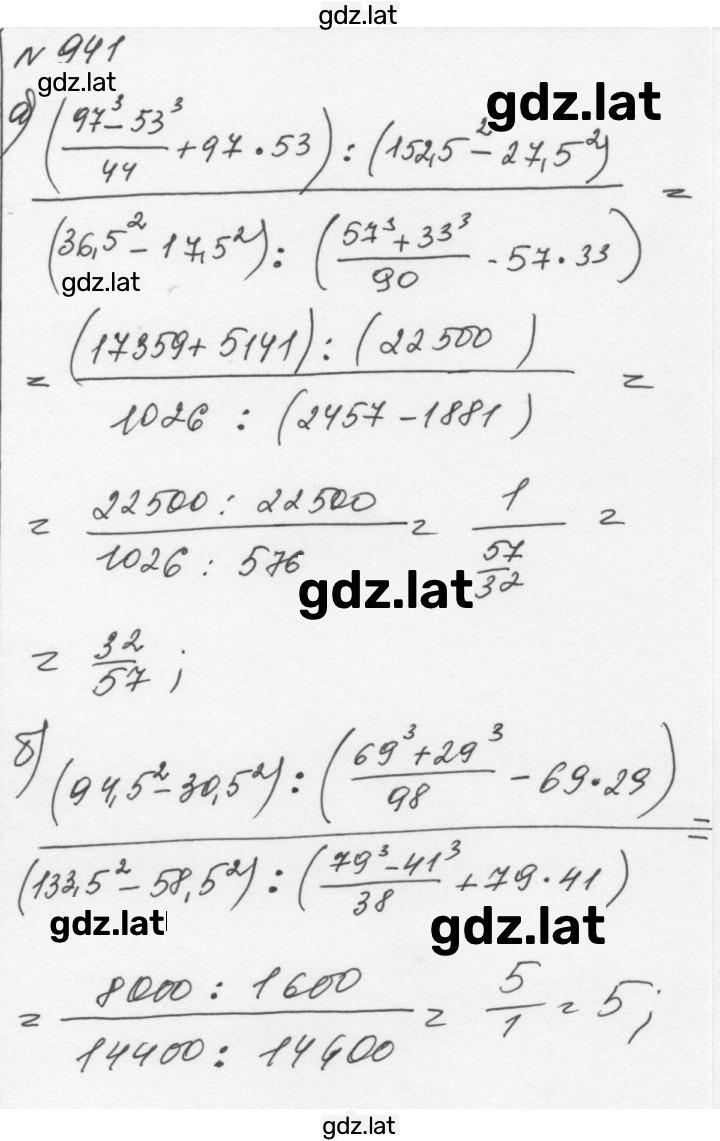 gdz.lat
N 941
gdz.lat
gdz.lat
а) ((97³ - 53³)/44 + 97 · 53) : (152,5² - 27,5²)
/ (36,5² - 17,5²) : ((57³ + 33³)/90 - 57 · 33) =
gdz.lat
= (17359 + 5141) : (22500)
/ 1026 : (2457 - 1881) =
= 22500 : 22500 / 1026 : 576 = 1 / (57/32) =
gdz.lat
= 32/57 ;
б) (94,5² - 30,5²) : ((69³ + 29³)/98 - 69 · 29)
/ (133,5² - 58,5²) : ((79³ - 41³)/38 + 79 · 41) =
gdz.lat
gdz.lat
= 8000 : 1600 / 14400 : 14400 = 5/1 = 5 ;
gdz.lat